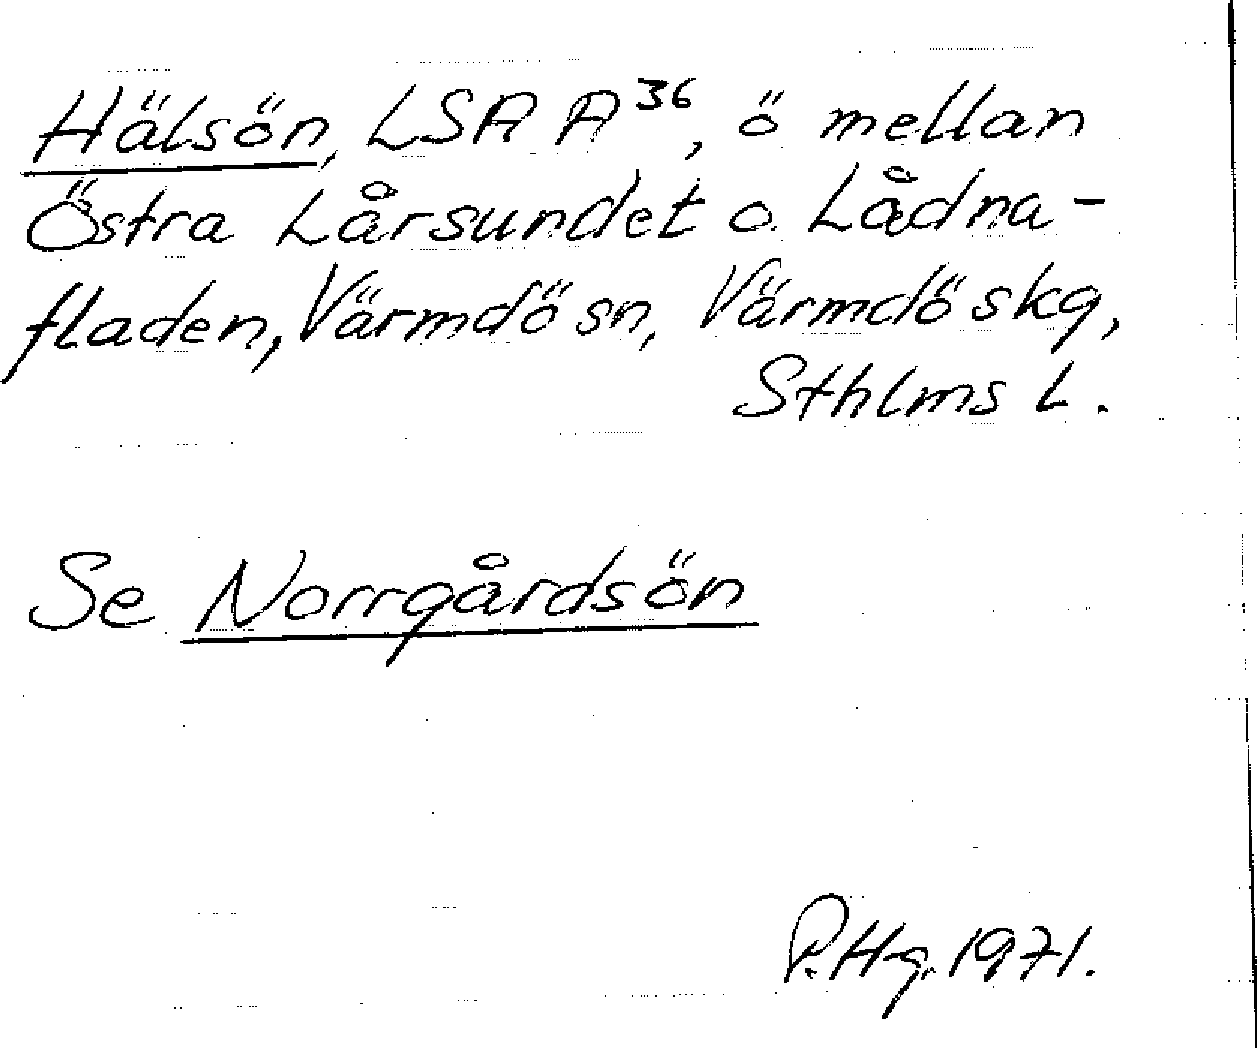 Hälsön, LSA A36, ö mellan
Östra Lårsundet o. Lådna-
fladen, Värmdö sn, Värmdö skg,
Sthlms L.
Se Norrgårdsön
P.Hg. 1971.